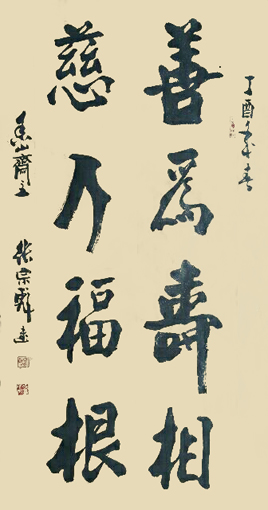 丁酉年春
善爲壽相
慈乃福根
香山齋主
張宗彪書